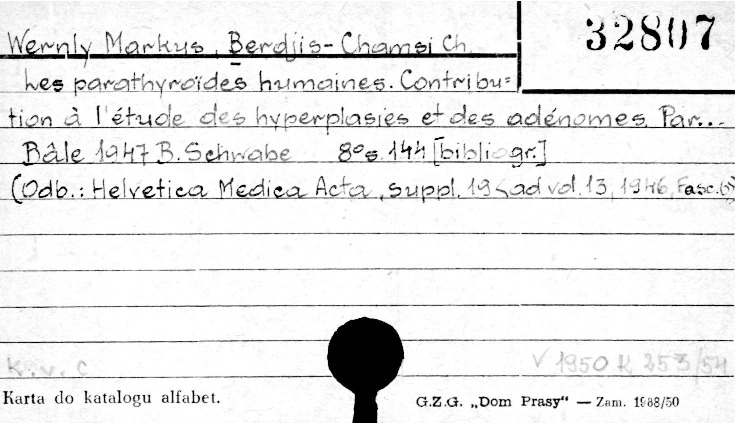 32807
Wernly Markus, Berdjis-Chamsi Ch.
Les parathyroïdes humaines. Contribu=
tion à l'étude des hyperplasies et des adénomes. Par...
Bâle 1947 B. Schwabe 8° s. 144 [bibliogr.]
(Odb.: Helvetica Medica Acta, suppl. 19 ad vol. 13, 1946, Fasc.
K. v. C
V 1950 K 253/54
Karta do katalogu alfabet.
G.Z.G. „Dom Prasy" — Zam. 1988/50